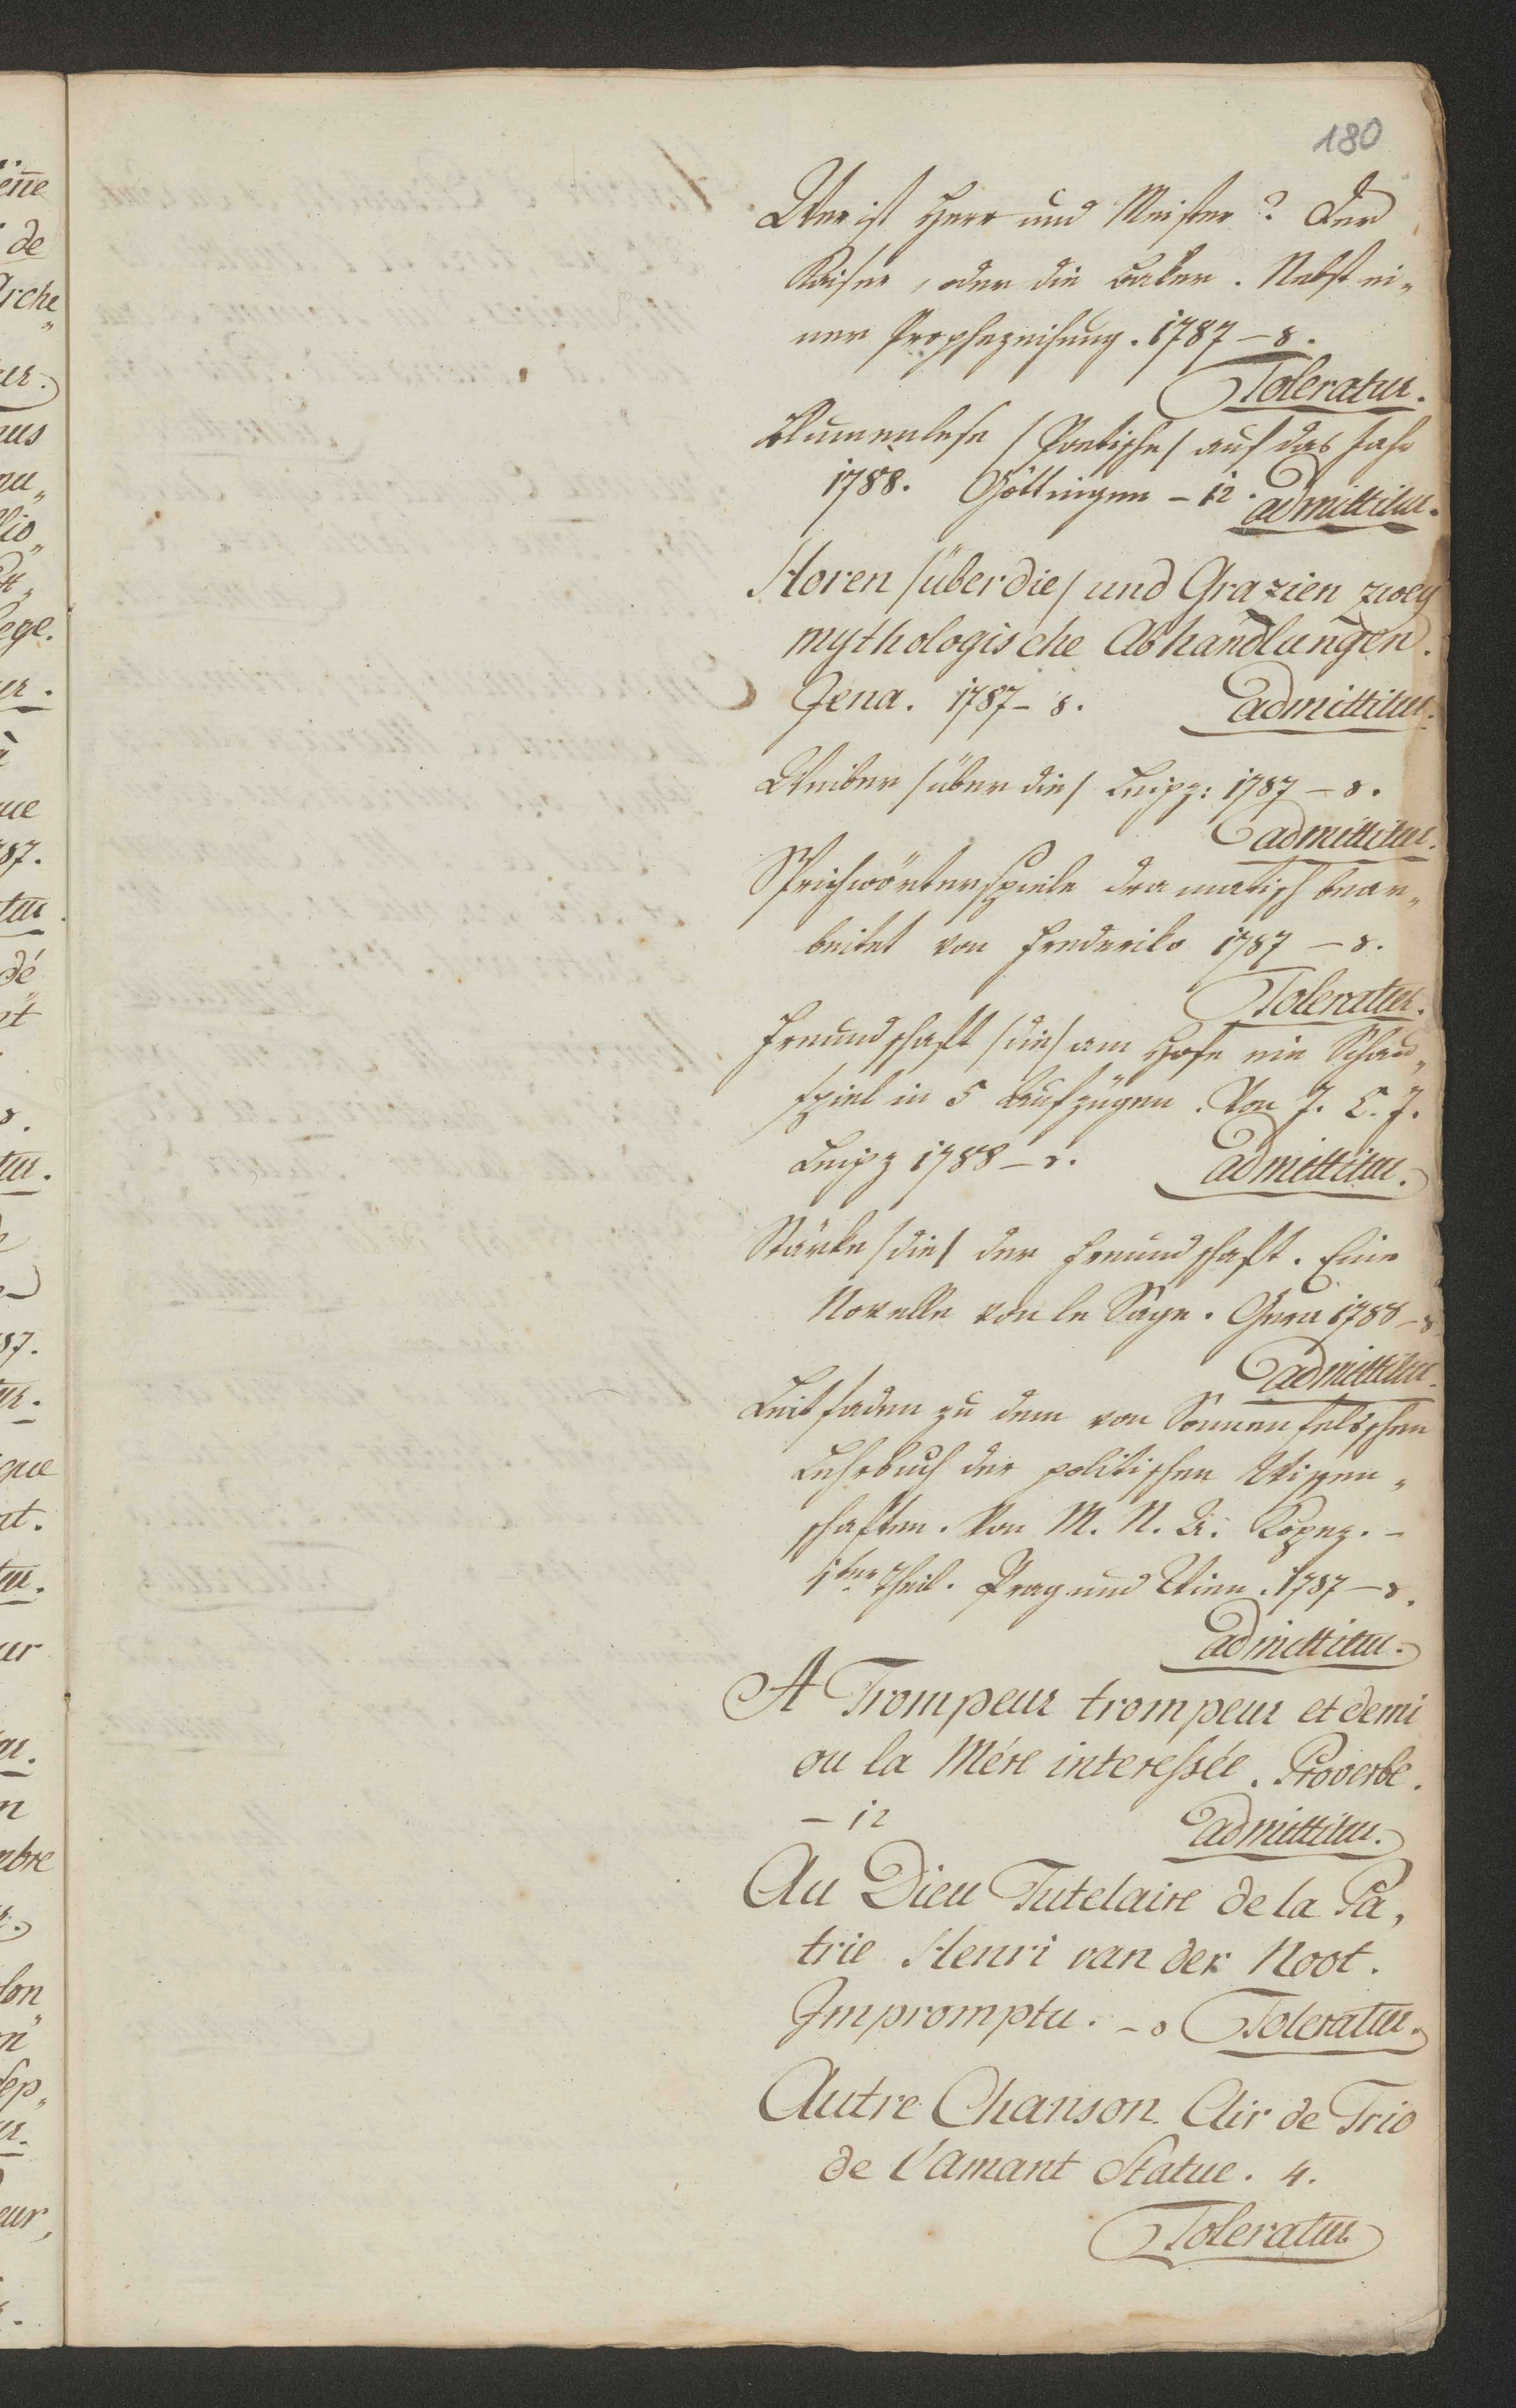 180
Wer ist Herr und Meister? Der
Kaiser, oder die . Nebst ei„
ner Prophezeihung. 1787 – 8.
Toleratur.
Blumenlese /Poetische/ auf das Jahr
1788. Göttingen – 12. admittitur.
Horen /über die/ und Grazien zwey
mythologische Abhandlungen.
Jena. 1787 – 8. admittitur.
Weiber /über die/ Leipz: 1787 – 8.
admittitur.
Sprichwörterspiele dramatisch bear„
beitet von Frederiko 1787 – 8.
Toleratur.
Freundschaft /die/ am Hofe ein Schau„
spiel in 5 Aufzügen. Von J. C. J.
Leipz 1788 – 8. admittitur.
Stärke /die/ der Freundschaft. Eine
Novelle von le Sage. Gera 1788 – 8
admittitur.
Leitfaden zu dem von Sonnenfelsischen
Lehrbuch der politischen Wissen„
schaften. Von M. N. U. Kopez. –
1ter Theil. Prag und Wien. 1787 – 8.
admittitur.
A Trompeur trompeur et demi
ou la Mére interessée. Proverbe.
– 12 admittitur.
Au Dieu Tutelaire de la Pa„
trie Henri van der Noot.
Impromptu. – 8 Toleratur.
Autre Chanson. Air de Trio
de l'amant Statue. 4.
Toleratur